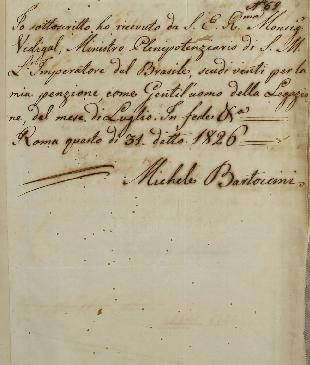 Nº 69
Io sottoscritto ho ricevuto da S. E. R.ma Monsig.r
Vidigal, Ministro Plenipotenziario di S. M.
L'Imperatore del Brasile, scudi venti per la
mia penzione come Gentiluomo della Legazio
ne, del mese di Luglio. In fede &a
Roma questo dì 31. ditto 1826
Michele Bartoccini